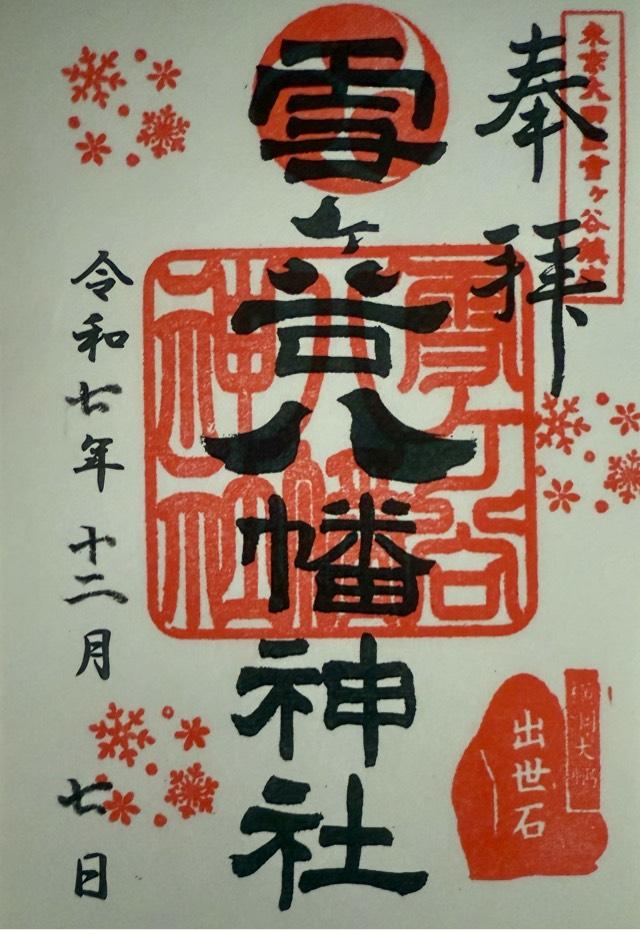 東京大田區雪ヶ谷鎮座
奉拝
雪ヶ谷八幡神社
雪ヶ谷八幡神社
令和七年 十二月 七日
出世石
横綱大鵬